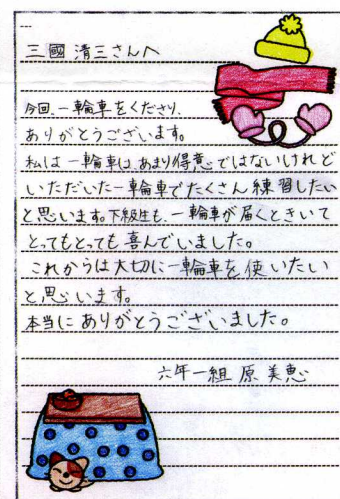 三國 清三さんへ
今回、一輪車をくださり、
ありがとうございます。
私は一輪車は、あまり得意ではないけれど
いただいた一輪車でたくさん練習したい
と思います。下級生も、一輪車が届くときいて
とってもとっても喜んでいました。
これからは大切に一輪車を使いたい
と思います。
本当にありがとうございました。
六年一組 原 美恵